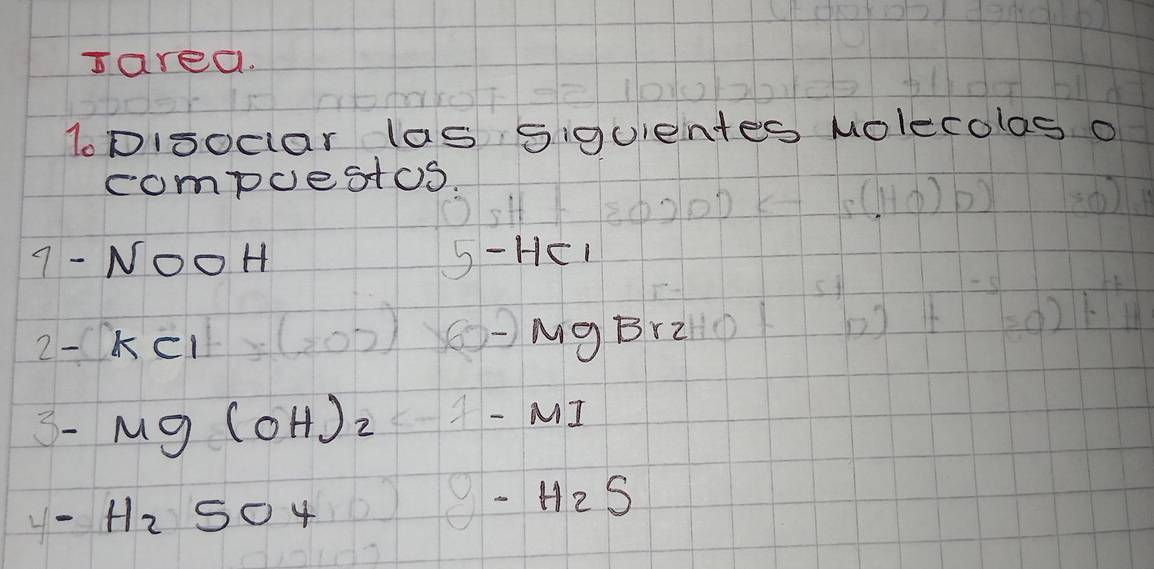 Tarea.
1. Disociar las siguientes Molecolas o
compuestos.
1- NOOH
5- HCl
2- KCl
6- MgBr2
3- Mg(OH)2
7- MI
4- H2SO4
8- H2S